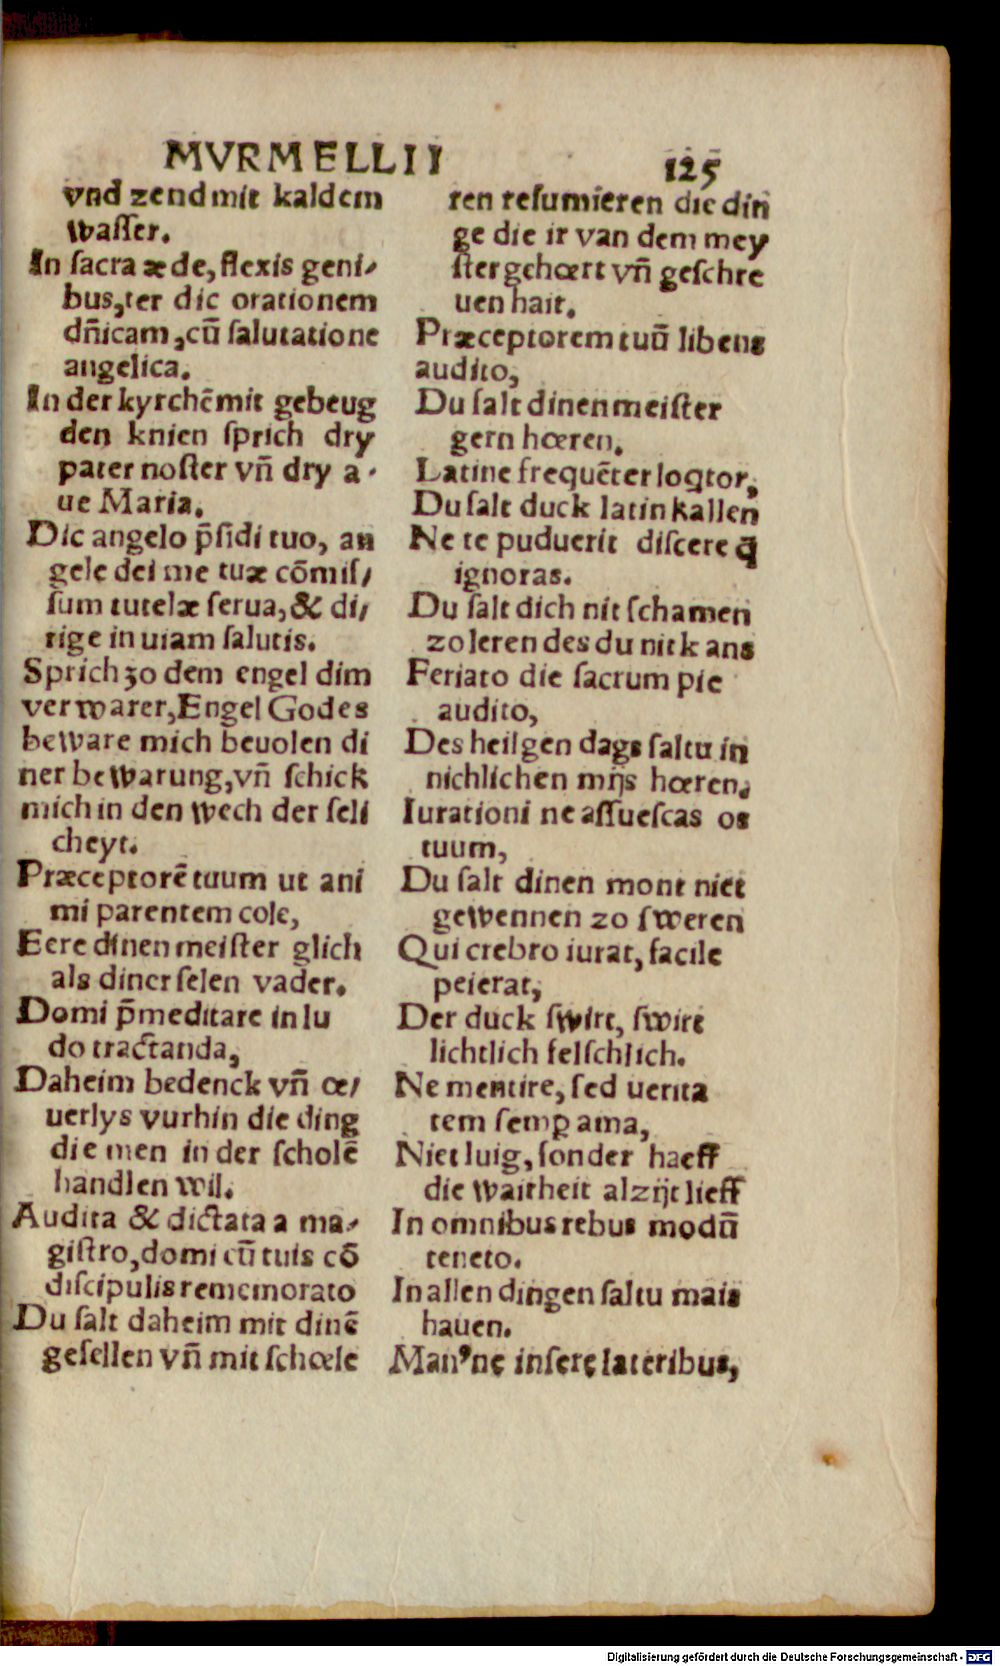 MVRMELLII 125
vnd zend mit kaldem
wasser.
In sacra æde, flexis geni-
bus, ter dic orationem
dn̄icam, cū salutatione
angelica.
In der kyrchē mit gebeug
den knien sprich dry
pater noster vn̄ dry a-
ue Maria.
Dic angelo p̄sidi tuo, an
gele dei me tuæ cōmis/
sum tutelæ serua, & di/
rige in uiam salutis.
Sprich zo dem engel dim
verwarer, Engel Godes
beware mich beuolen di
ner bewarung, vn̄ schick
mich in den wech der seli
cheyt.
Præceptorē tuum ut ani
mi parentem cole,
Eere dinen meister glich
als diner selen vader.
Domi p̄meditare in lu
do tractanda,
Daheim bedenck vn̄ œ/
uerlys vurhin die ding
die men in der scholē
handlen wil.
Audita & dictata a ma-
gistro, domi cū tuis cō
discipulis rememorato
Du salt daheim mit dinē
gesellen vn̄ mit schœle
ren resumieren die din
ge die ir van dem mey
ster gehœrt vn̄ geschre
uen hait.
Præceptorem tuū libens
audito,
Du salt dinen meister
gern hœren.
Latine frequēter loqtor,
Du salt duck latin kallen
Ne te puduerit discere q̄
ignoras.
Du salt dich nit schamen
zo leren des du nit kans
Feriato die sacrum pie
audito,
Des heilgen dags saltu in
nichlichen mijs hœren.
Iurationi ne assuescas os
tuum,
Du salt dinen mont niet
gewennen zo sweren
Qui crebro iurat, facile
peierat,
Der duck swirt, swirt
lichtlich felschlich.
Ne mentire, sed uerita
tem semꝑ ama,
Niet luig, sonder haeff
die waitheit alzijt lieff
In omnibus rebus modū
teneto.
In allen dingen saltu mais
hauen.
Manꝰ ne insere lateribus,
Digitalisierung gefördert durch die Deutsche Forschungsgemeinschaft - DFG